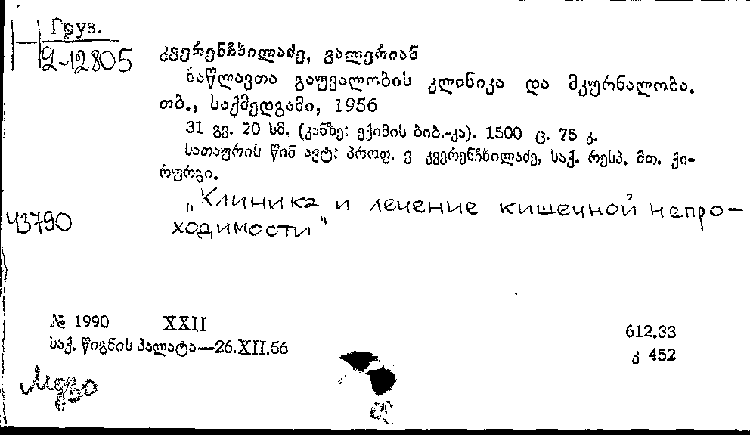 Груз.
2-12805
კვერენჩხილაძე, ვალერიან
ნაწლავთა გაუვალობის კლინიკა და მკურნალობა.
თბ., საქმედგამი, 1956
31 გვ. 20 სმ. (კანზე: ექიმის ბიბ.-კა). 1500 ც. 75 კ.
სათაურის წინ ავტ: პროფ. ვ კვერენჩხილაძე, საქ. რესპ. მთ. ქი-
რურგი.
„Клиника и лечение кишечной непро-
ходимости"
43790
№ 1990 XXII
საქ. წიგნის პალატა—26.XII.56
612.33
კ 452